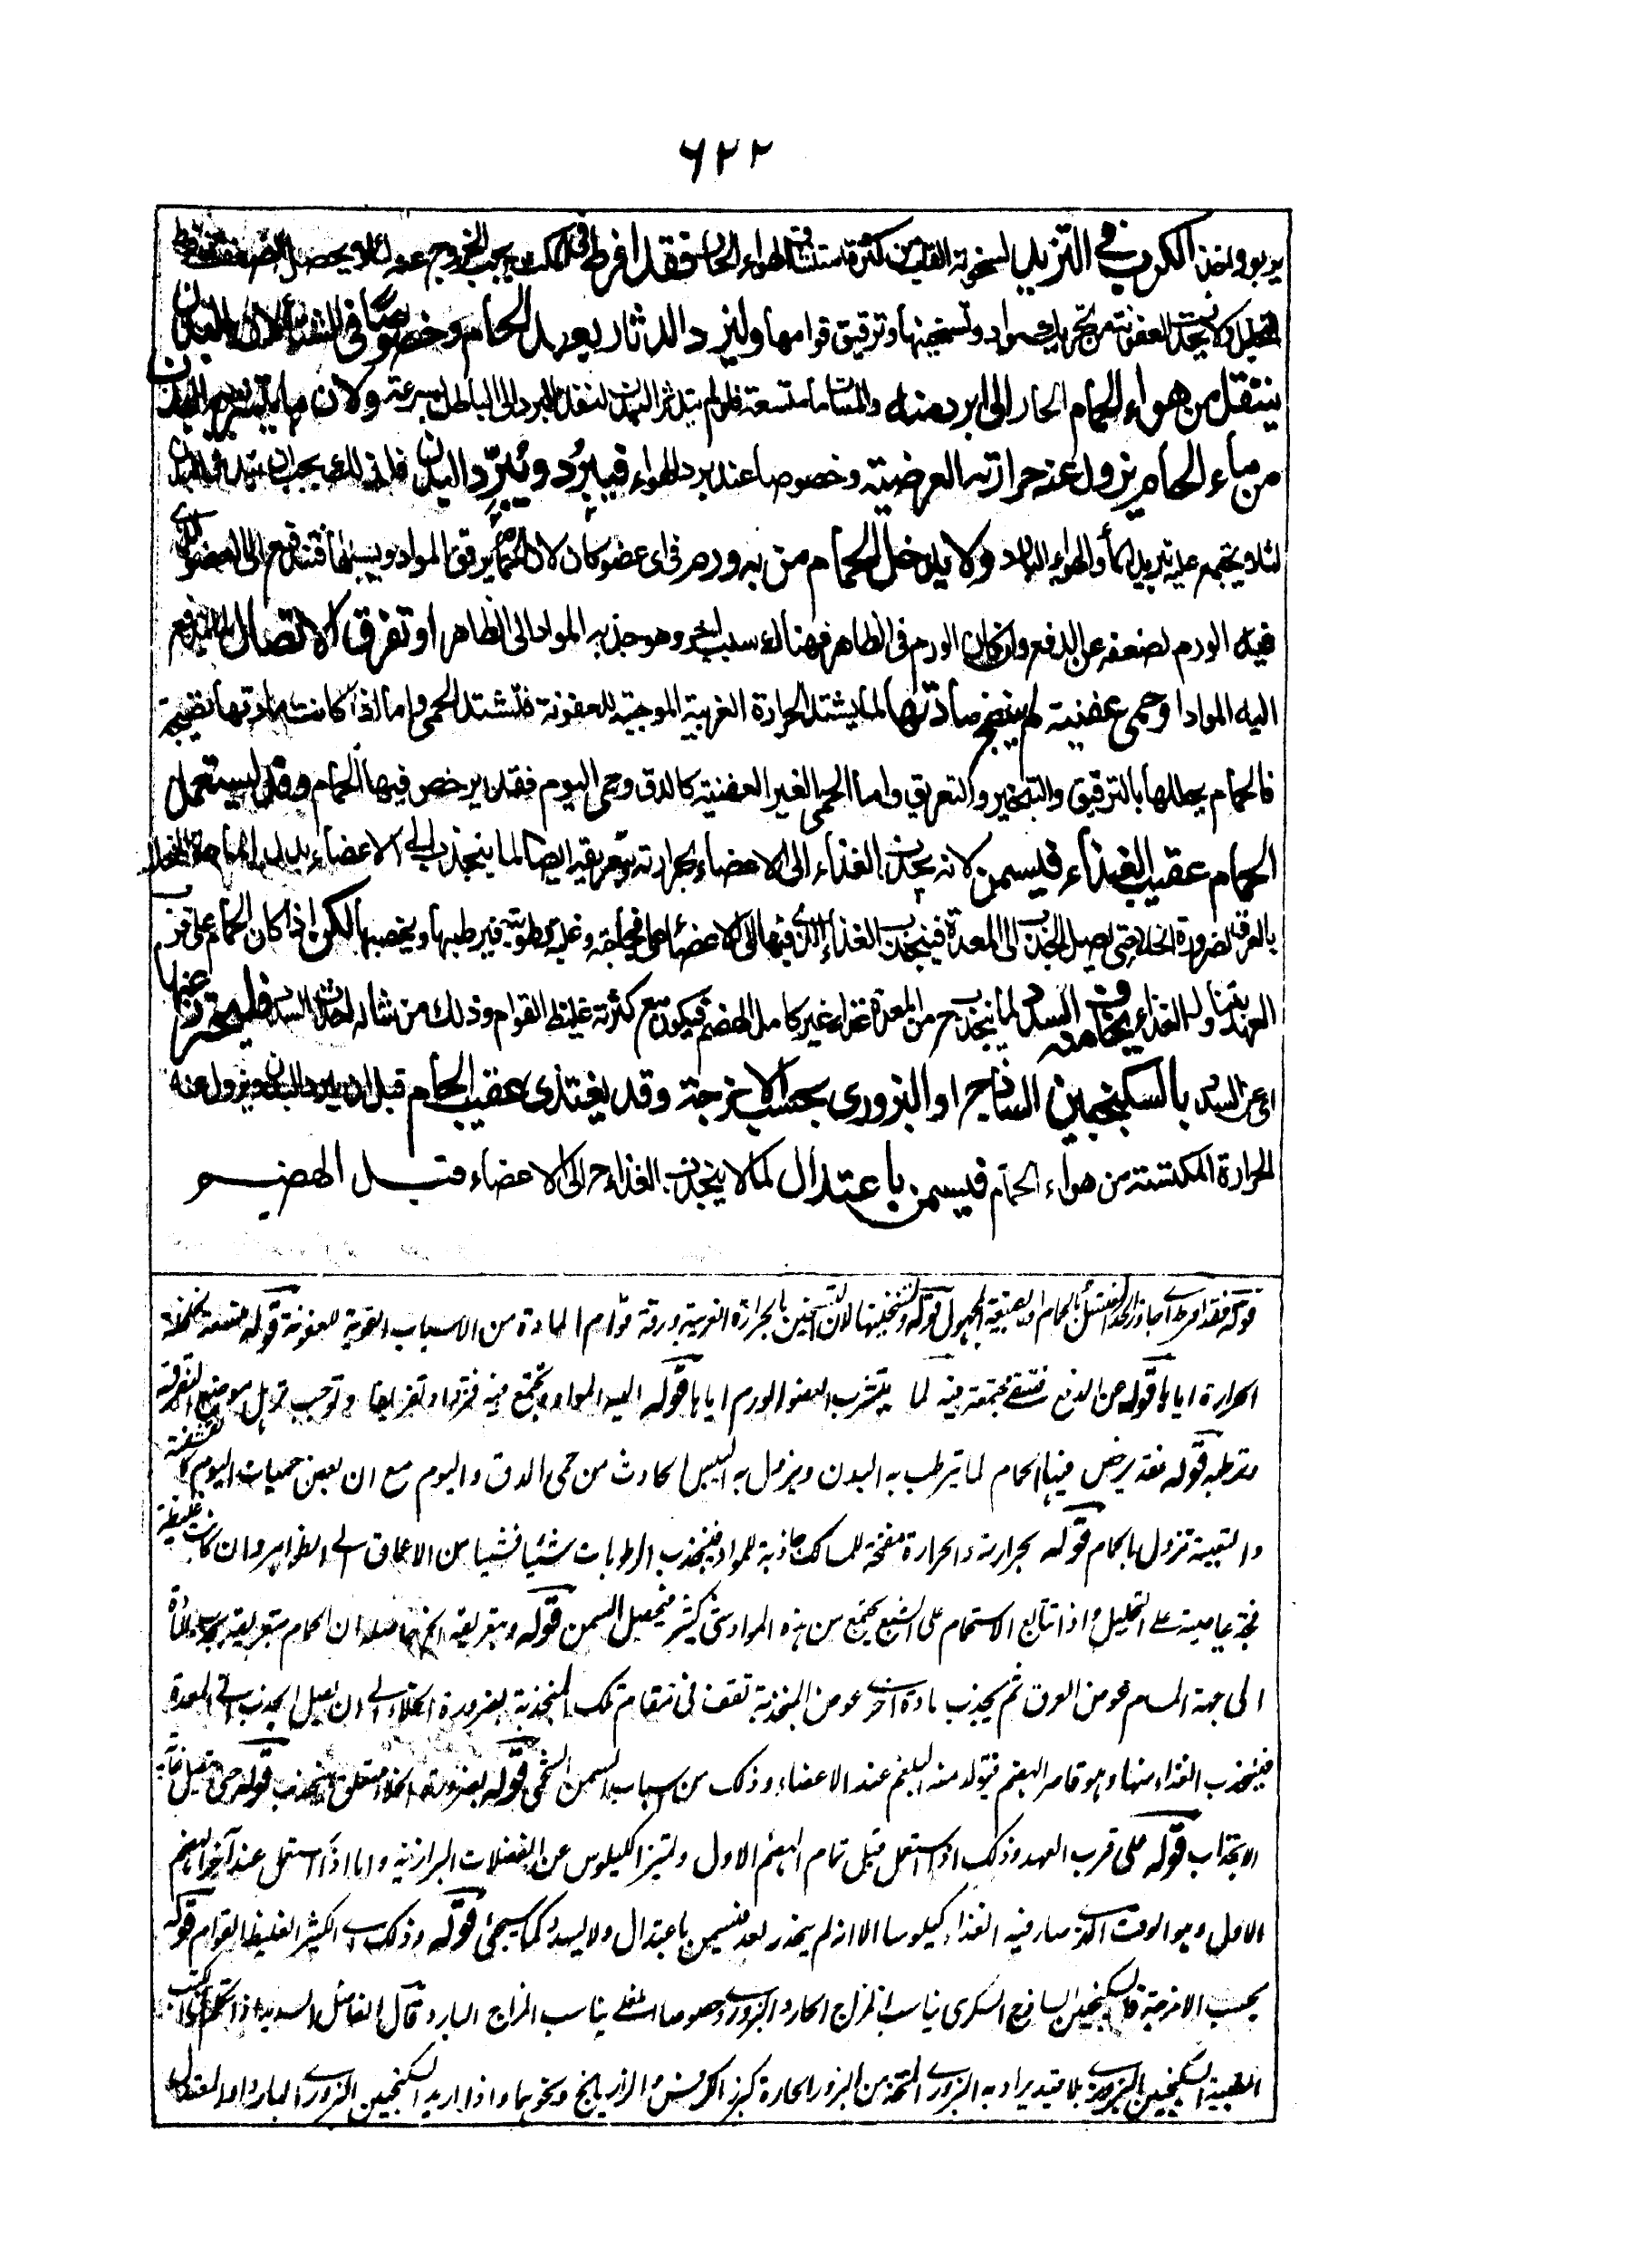 ٦٢٢
يربو واخذ الكرب في التزيد لسخونة القلب من كثرة استنشاق الهواء الحار فقد افرط يجب الخروج عنه لئلا يحصل
التحليل ولئلا يحدث العفونة من تحريك المواد وتسخينها وترقيق قوامها وليزد الدثار بعد الحمام وخصوصا في الشتاء لان البدن
ينتقل من هواء الحمام الحار الى ابرد منه والمسامات متسعة فلو لم يتدثر البدن لنفذ البرد الى الباطن بسرعة ولان ما يتشربه البدن
من ماء الحمام يزول عنه حرارته العرضية وخصوصا عند برد الهواء فيبرد ويبرد البدن فلذلك يجب ان يتدثر البدن
لئلا يجتمع عليه تبريد الماء والهواء البارد ولا يدخل الحمام من به ورم في اي عضو كان لان الحمام يرقق المواد ويسيلها فتندفع الى العضو الذي
فيه الورم لضعفه عن الدفع وان كان الورم في الظاهر فهناك سبب اخر وهو جذبه المواد الى الظاهر او تفرق الاتصال لما يندفع
اليه المواد او حمى عفنية لم ينضج مادتها لما يشتد الحرارة الغريبة الموجبة للعفونة فتشتد الحمى واما اذا كانت مادتها نضيجة
فالحمام يحللها بالترقيق والتبخير والتعريق واما الحمى الغير العفنية كالدق وحمى اليوم فقد يرخص فيها الحمام وقد يستعمل
الحمام عقيب الغذاء فيسمن لانه يجذب الغذاء الى الاعضاء بحرارته وبتعريقه ايضا لما ينجذب الى الاعضاء بدل
بالعرق لضرورة الخلاء حتى يصل الجذب الى المعدة فينجذب الغذاء الذي فيها الى الاعضاء على فجاجته وغلبة رطوبته فيرطبها ويخصبها لكن اذا كان الحمام على قرب
العهد بتناول الغذاء يخاف منه السدد لما ينجذب ح من المعدة غذاء غير كامل الهضم فيكون مع كثرته غليظ القوام وذلك من شانه احداث السدد فليحترز عنها
اي عن السدد بالسكنجبين الساذج او البزوري بحسب الامزجة وقد يغتذى عقيب الحمام قبل ان يبرد البدن ويزول عنه
الحرارة المكتسبة من هواء الحمام فيسمن باعتدال لما لا ينجذب الغذاء ح الى الاعضاء قبل الهضم
قوله فقد افرط اي جاوز الحد المغتسل بالحمام او بصيغة المجهول قوله وتسخينها لان التسخين بالحرارة الغريبة ورقة قوام المادة من الاسباب القوية للعفونة قوله متسعة
الحرارة اياها قوله عن الدفع فتبقى مجتمعة فيه لما يتشرب العضو الورم اياها قوله اليه المواد ويجتمع فيه فتزيد وتفريقا وتوجب ترهل موضع التفرقة
وترطبه قوله فقد يرخص فيها الحمام لما يترطب به البدن ويزول به اليبس الحادث من حمى الدق واليوم مع ان بعض حميات اليوم
والتعبية تزول بالحمام قوله بحرارته والحرارة مفتحة للمسالك جاذبة للمواد فينجذب الرطوبات شيئا فشيئا من الاعماق الى الظواهر وان كانت غليظة
فجة عاصية على التحليل واذا تتابع الاستحمام على الشبع يجتمع من هذه المواد شيء كثير فيحصل السمن قوله وبتعريقه ان الحمام بتعريقه يجذب المادة
الى جهة المسام عوض العرق ثم يجذب مادة اخرى عوض المنجذبة تقف في مقام تلك المنجذبة لضرورة الخلاء الى ان يصل الجذب الى المعدة
فينجذب الغذاء منها وهو قاصر الهضم فيتولد منه البلغم عند الاعضاء وذلك من اسباب السمن الشحمي قوله لضرورة الخلاء متعلق ينجذب قوله حتى يصل غاية
الانجذاب قوله على قرب العهد وذلك اذا استعمل قبل تمام الهضم الاول وتميز الكيلوس عن الفضلات البرازية واما اذا استعمل عند آخر الهضم
الاول وهو الوقت الذي صار فيه الغذاء كيلوسا الا انه لم ينحدر بعد فيسمن باعتدال ولا يسدد كما سيجئ قوله وذلك اي الكثير الغليظ القوام قوله
بحسب الامزجة فالسكنجبين الساذج السكري يناسب المزاج الحار والبزوري وخصوصا العسلي يناسب المزاج البارد وقال الفاضل السديد اذا
الطبية السكنجبين البزوري بلا قيد يراد به البزوري المتخذ من البزور الحارة كبزر الكرفس والرازيانج ونحوهما واذا اريد السكنجبين البزوري البارد او المعتدل